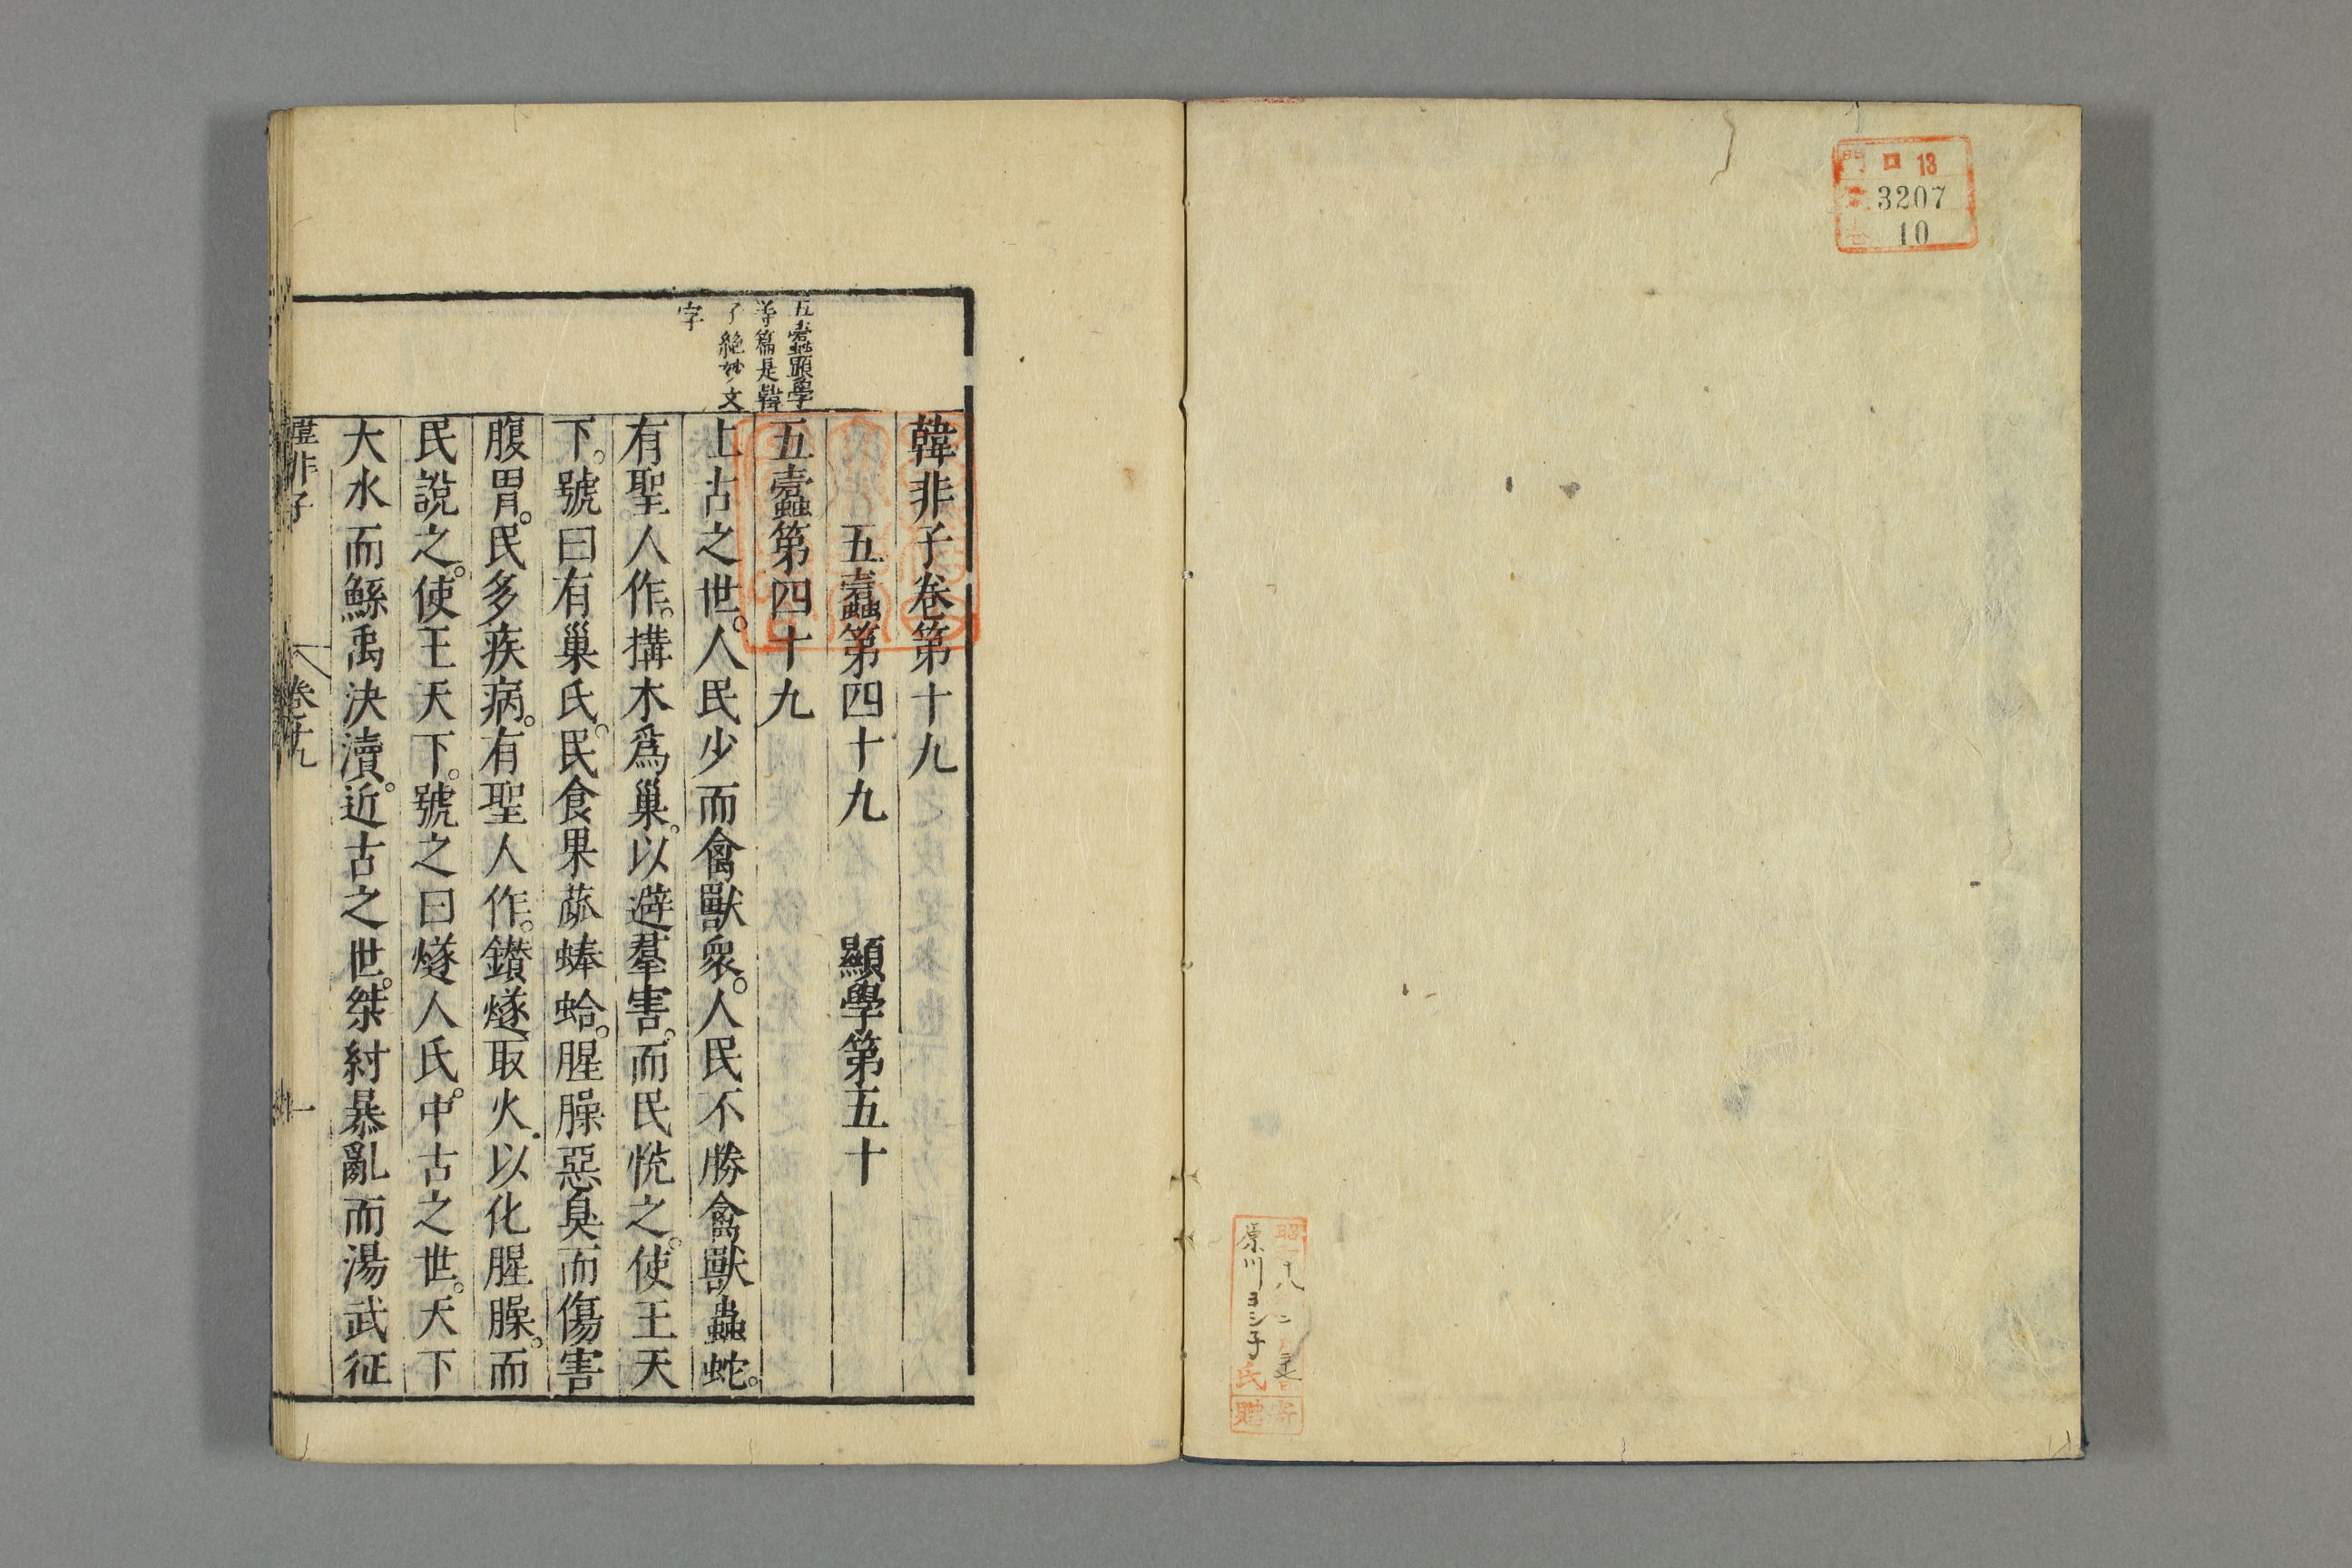 門 口 13
3207
10
昭 十八 二
原川ヨシ子氏
寄贈
韓非子卷第十九
五蠹第四十九 顯學第五十
五蠹第四十九
上古之世。人民少而禽獸衆。人民不勝禽獸蟲蛇。
有聖人作。搆木爲巢。以避羣害。而民悅之。使王天
下。號曰有巢氏。民食果蓏蜯蛤。腥臊惡臭而傷害
腹胃。民多疾病。有聖人作。鑚燧取火。以化腥臊。而
民說之。使王天下。號之曰燧人氏。中古之世。天下
大水而鯀禹決瀆。近古之世。桀紂暴亂而湯武征
五蠹顯學
等篇是韓
了絶妙文
字
韓非子 卷十九 一